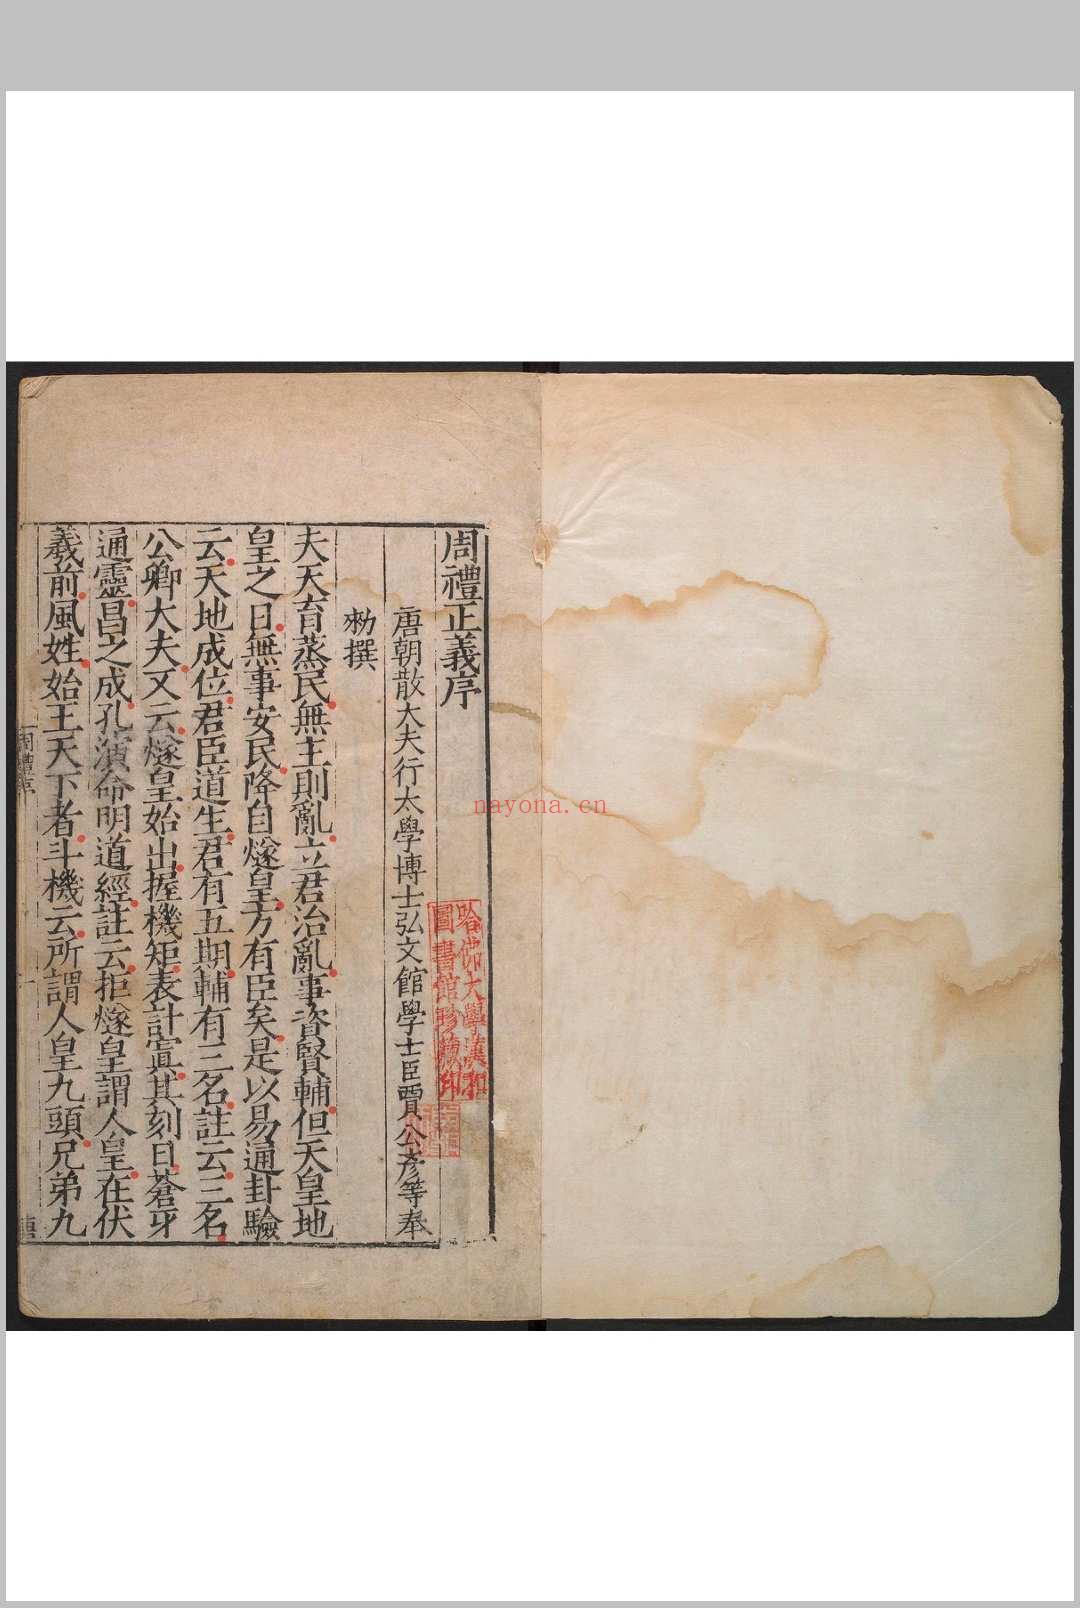 周禮正義序
唐朝散大夫行太學博士弘文館學士臣賈公彥等奉
勑撰
夫天育蒸民無主則亂立君治亂事資賢輔但天皇地
皇之日無事安民降自燧皇方有臣矣是以易通卦驗
云天地成位君臣道生君有五期輔有三名註云三名
公卿大夫又云燧皇始出握機矩表計寘其刻曰蒼牙
通靈昌之成孔演命明道經註云拒燧皇謂人皇在伏
羲前風姓始王天下者斗機云所謂人皇九頭兄弟九
哈佛大學漢和
圖書館珍藏印
nayona.cn